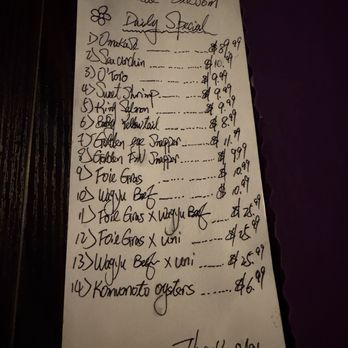 Daily Special
1) Omakase $89.99
2) Sea urchin ...... $10.99
3) O'Toro ......... $9.99
4) Sweet Shrimp ....... $9.99
5) King Salmon ....... $9.99
6) Baby Yellowtail ..... $8.99
7) Golden eye Snapper ... $11.99
8) Golden Snapper ..... $9.99
9) Foie Gras ........ $10.99
10) Wagyu Beef ....... $10.99
11) Foie Gras X Wagyu Beef ... $25.99
12) Foie Gras X uni ...... $25.99
13) Wagyu Beef X uni ..... $25.99
14) Kumomoto oysters ..... $6.99